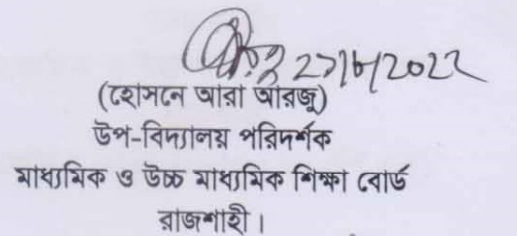 ২১/৮/২০২২
(হোসনে আরা আরজু)
উপ-বিদ্যালয় পরিদর্শক
মাধ্যমিক ও উচ্চ মাধ্যমিক শিক্ষা বোর্ড
রাজশাহী।